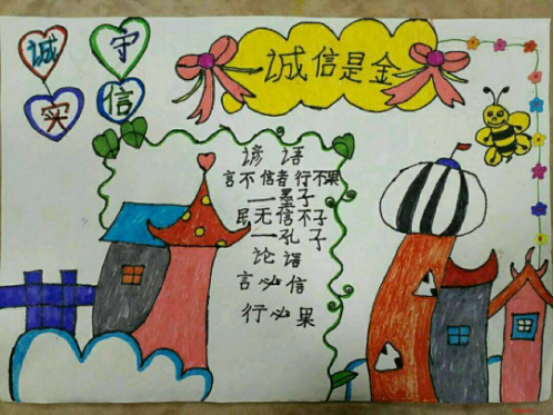 诚实
守信
诚信是金
谚语
言不信者行不果
—墨子
民无信不子
—孔子
论语
言必信
行必果